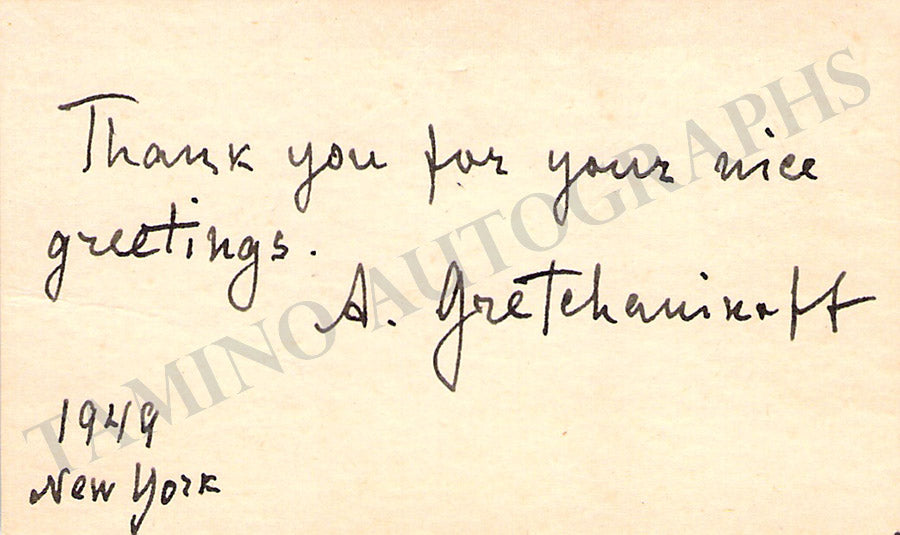 Thank you for your nice
greetings.
A. Gretchaninoff
1949
New York
TAMINO AUTOGRAPHS